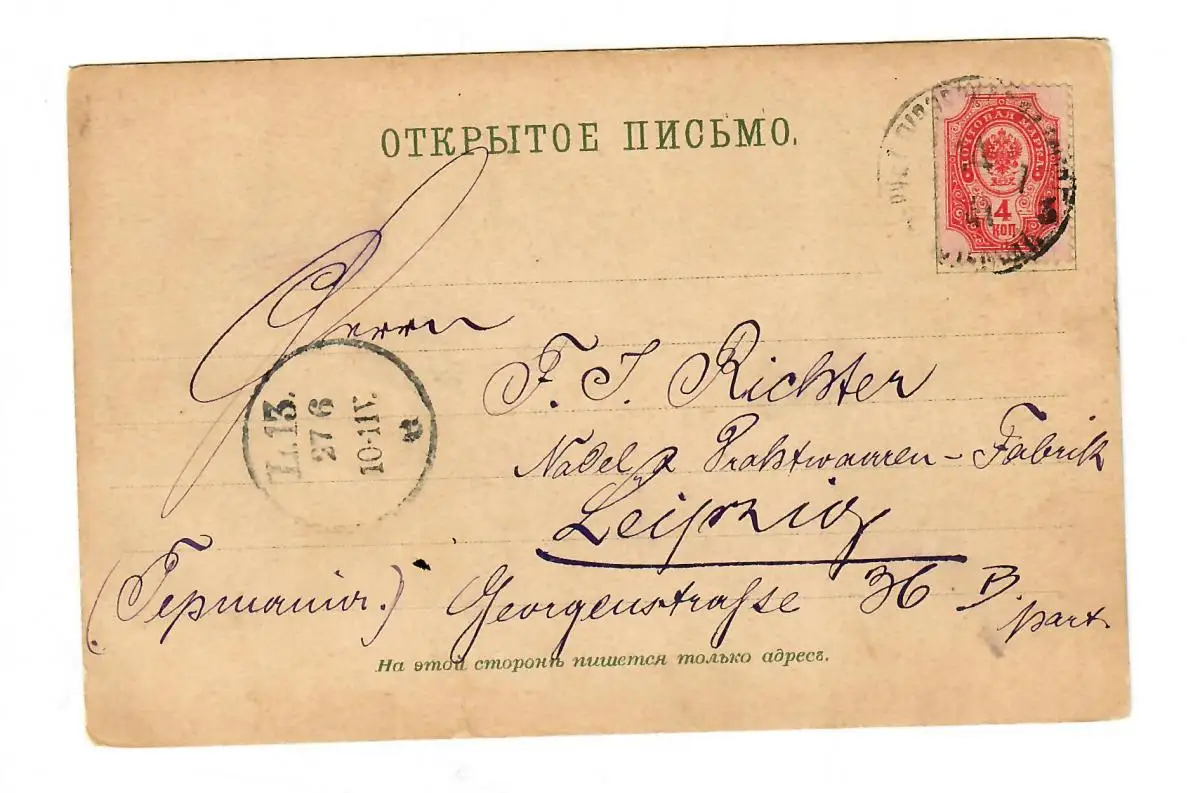 ОТКРЫТОЕ ПИСЬМО.
ПОЧТОВАЯ МАРКА
4
КОП
Herrn
F. J. Richter
Nadel & Drahtwaaren-Fabrik
Leipzig
(Германия.) Georgenstraße 36 B.
part.
L. 13.
27 6
10-11V.
На этой сторонѣ пишется только адресъ.